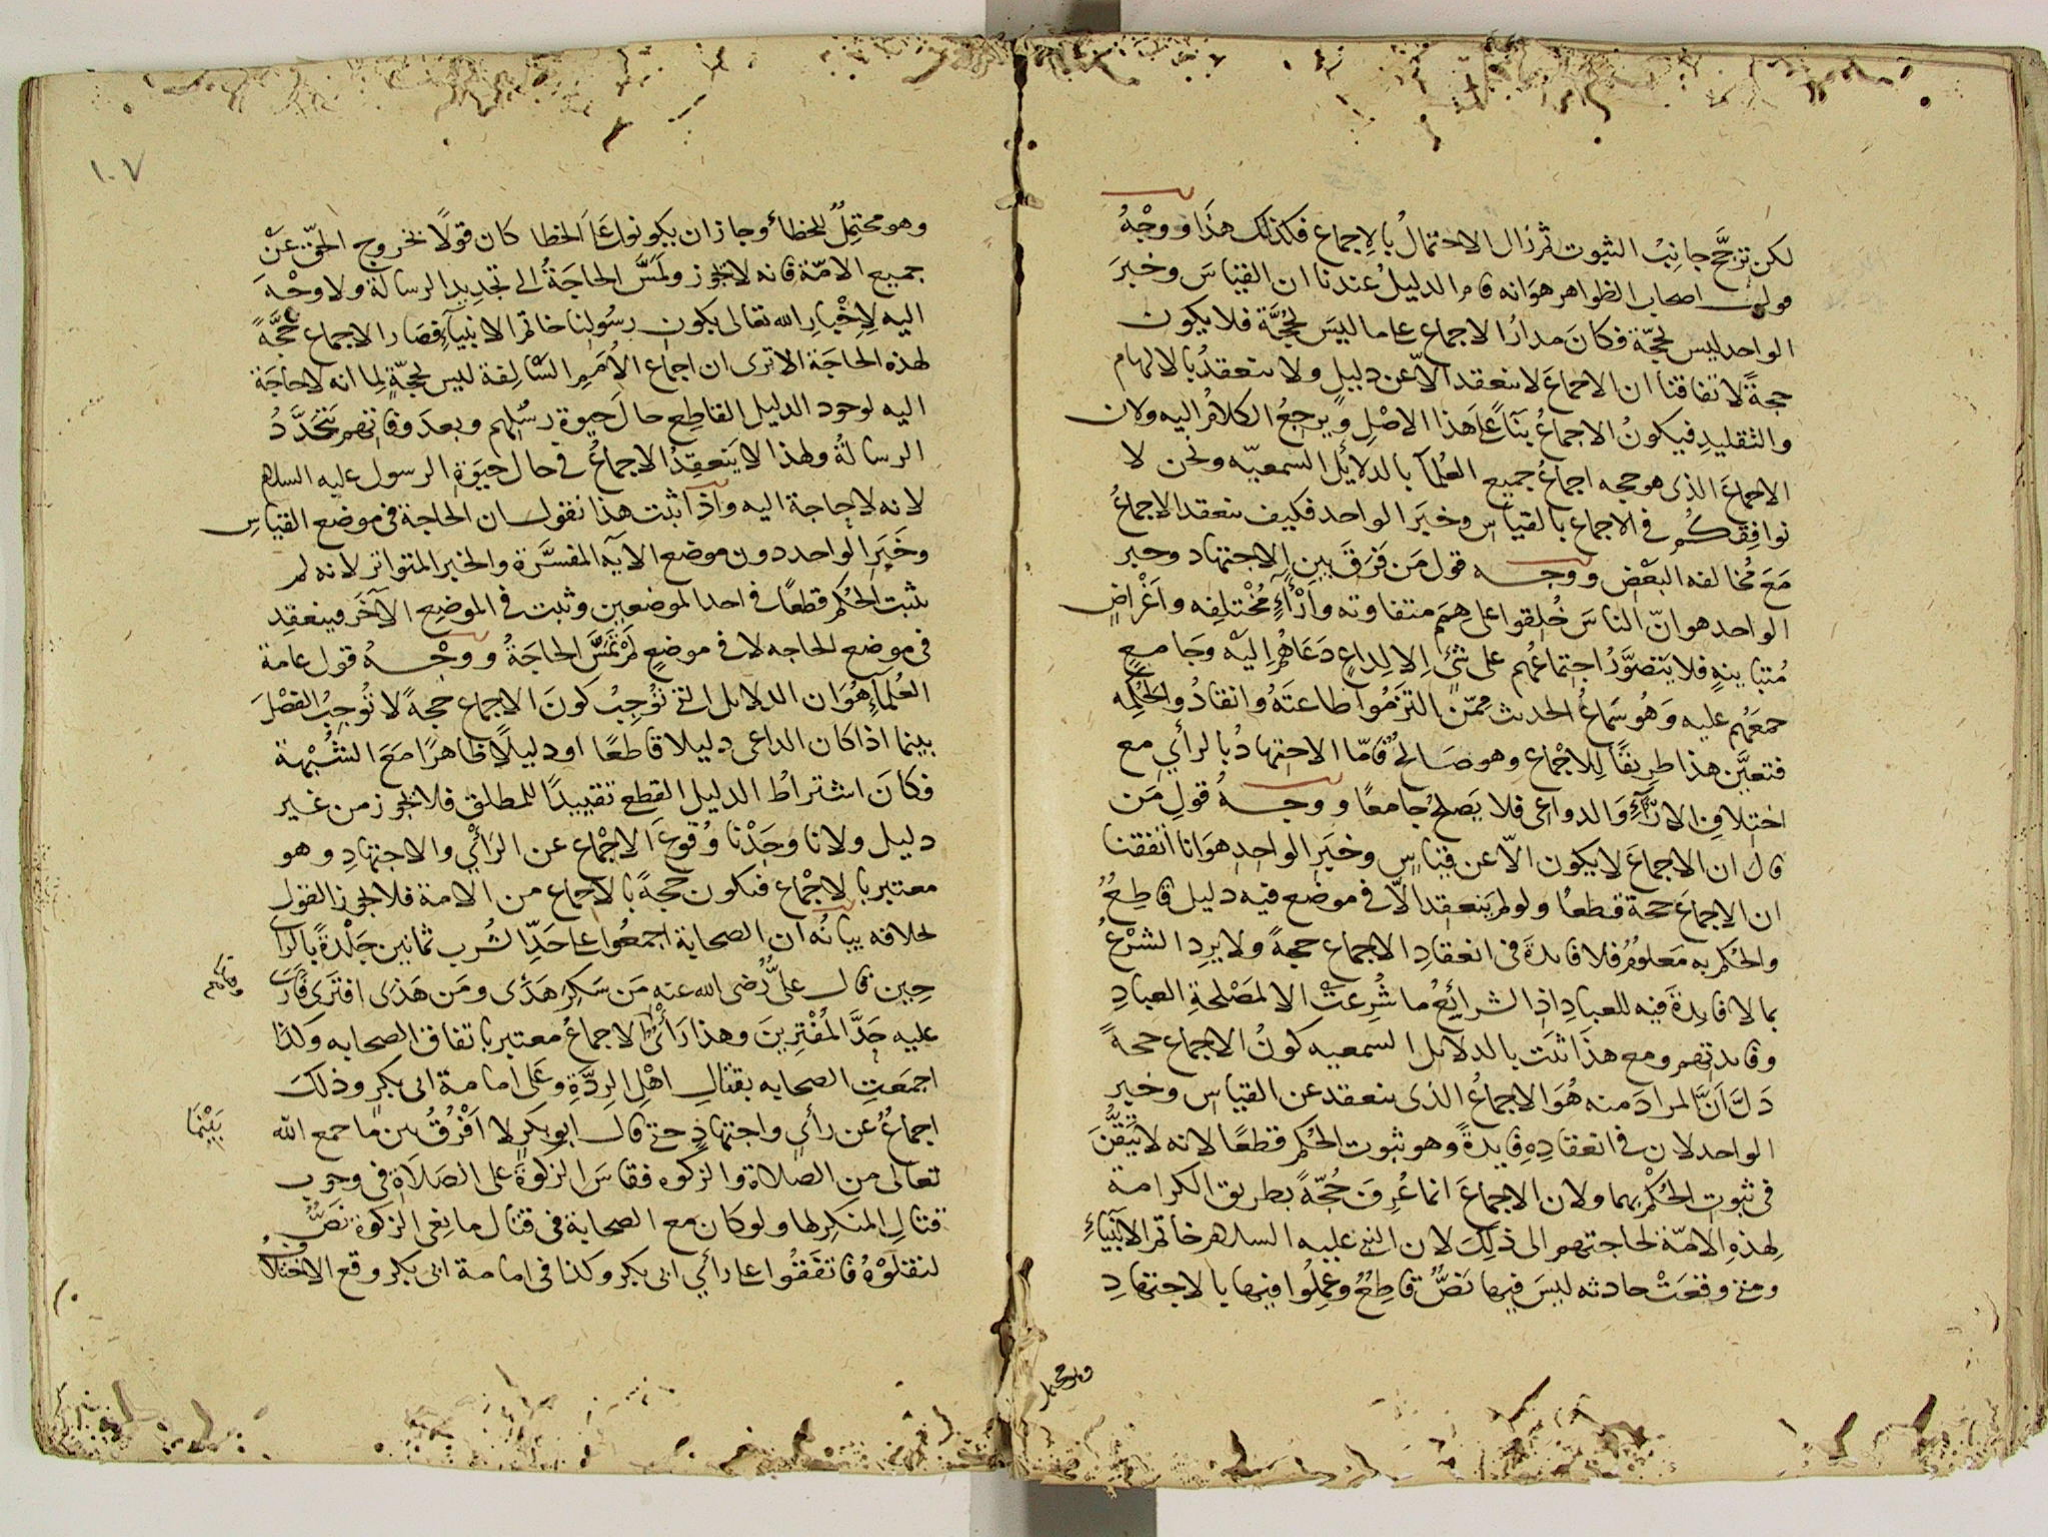 لكن ترجَّح جانِبُ الثبوت ثم زال الاحتمالُ بالإجماع فكذلك هذا ووجْهُ
قول اصحاب الظواهر هوَ انه قام الدليلُ عندنا ان القياسَ وخبرَ
الواحد ليس بحجّة فكانَ مدارُ الاجماع على ما ليسَ بحُجَّة فلا يكون
حجةً لاتفاقنا ان الاجماعَ لا ينعقد الّا عن دليلٍ ولا ينعقدُ بالالهام
والتقليدِ فيكونُ الاجماعُ بنآءً عَلَى هذا الاصْلِ ويرجعُ الكلامُ اليه ولان
الاجماعَ الذى هو حجه اجماعُ جميع العُلمآ بالدلائل السمعيّه ونحن لا
نوافِقكُم فى الاجماع بالقياس وخبَر الواحد فكيف ينعقد الاجماعُ
مَعَ مُخالفه البَعْضِ ووجه قول مَن فَرَقَ بين الاجتهاد وخبر
الواحد هو انّ الناسَ خُلِقوا على هِمَمٍ متفاوته وآرآءٍ مُخْتلِفه واَغْراضٍ
مُتباينهٍ فلا يَتصَوَّرُ اجتماعُهم على شئ الا لِداعٍ دَعَاهُم اليْه وجَامعٍ
جمعَهم عليه وَهُو سَماعُ الحديث ممّن التزَمُوا طاعتَهُ وانقادُوا لحُكْمِه
فتعيَّن هذا طريقًا لِلاجْماع وهو صَالحٌ فامّا الاجتهادُ بالرأي مع
اختِلافِ الارآءِ وَالدواعى فلا يَصلحُ جامعًا ووجهُ قولِ مَن
قال ان الاجماعَ لا يكون الّا عن قياسٍ وخبَرِ الواحِدِ هوَ انا اتفقنا
ان الاجماعَ حجة قطعًا ولو لم يَنعقد الّا فى موضع فيه دليل قاطِعٌ
والحُكم به مَعلومٌ فلا فايدةَ فى انعقادِ الاجماع حجةً ولا يرِد الشرْعُ
بما لا فايدةَ فيه للعبادِ اذِ الشرائِعُ ما شُرِعَتْ الا لمَصْلحةِ العبادِ
وفايدتهم ومع هذا ثبَت بالدلايل السمعيه كونُ الاجماع حجةً
دَلَّ اَنَّ المرادَ منه هُوَ الاجماعُ الذى ينعقد عن القياس وخبر
الواحد لان فى انعقادِهِ فايدةً وهو ثبوت الحُكم قطعًا لانه لا يَتيقَّنَ
فى ثبوتِ الحُكْم بهما ولان الاجماعَ انما عُرِفَ حُجّةً بطريق الكرامة
لِهذهِ الامّة لحاجتهم الى ذلكَ لان النبي عليه السلام خاتم الانبيآءِ
ومتى وقعَتْ حادثه ليسَ فيها نصٌّ قاطِعٌ وعَمِلُوا فيها بالاجتهادِ
وهو محتمل
١٠٧
وهو محتمِلٌ للخطأ وجاز ان يكونوا عَلَى الخطا كان قولًا بخروج الحقّ عَنْ
جميع الامّة فانه لا يجوز ولَمَسَّ الحاجَةُ الى تجديدِ الرسالة ولا وجْهَ
اليه لِاخْبارِ الله تعالى بكون رسُولنا خاتم الانبيآءِ فصَار الاجماع حُجَّةً
لهذه الحاجَة الا ترى ان اجماع الاُمَمِ السَّالِفة ليس بحجّةٍ لِما انه لا حاجَة
اليه لوجود الدليل القاطِع حالَ حيوة رسُلهم وبعدَ وفاتهم يتجدَّدُ
الرسالةُ ولهذا لا ينعقِدُ الاجماعُ فى حال حيوَةِ الرسول عليه السلام
لانه لا حاجة اليه واذا ثبت هذا نقول ان الحاجة فى موضع القياسِ
وخَبَرِ الواحد دون موضع الآيه المفسَّرة والخبر المتواتر لانه لم
يثبت الحُكم قطعًا فى احد الموضعين وثبت فى الموضِع الآخَر فينعقِد
فى موضِع الحاجه لا فى موضعٍ لم تَمَسَّ الحاجَةُ ووجْهُ قول عامة
العُلمآءِ هُوَ ان الدلايل التى تُوجِبُ كونَ الاجماع حجةً لا تُوجِبُ الفَصْلَ
بينما اذا كان الداعى دليلا قاطعًا او دليلًا ظاهرًا مَعَ الشُّبْهة
فكانَ اشتراطُ الدليل القطع تقييدًا للمطلق فلا يجوز من غير
دليل ولانا وجَدْنا وُقوعَ الاجْماع عن الرَأْيِ والاجتهادِ وهو
معتبر بالاجْماع فيكون حجةً بالاجماع من الامة فلا يجوز القول
بخلافه بيانُه ان الصحابة اجمعُوا على حَدِّ الشُرب ثمانين جَلْدةً بالرأى
حِين قال علىٌّ رضى الله عنه مَن سَكِرَ هَذَى ومَن هَذى افترَى فأرى
عليه حَدَّ المُفْتِرينَ وهذا رَأْىٌ الاجماعُ معتبر باتفاق الصحابه وَكَذا
اجمَعَتِ الصحابه بقتالِ اهْلِ الرِدَّةِ وعَلى امامة ابى بكرٍ وذلكَ
اجماعٌ عن رأيٍ واجتهادٍ حتى قال ابو بكرٍ لا اَفْرُقُ بين ما جمع الله
تعالى من الصلاة والزكوه فقاسَ الزكوةَ على الصَلاَةِ فى وجوب
قتالِ المنكِر لها ولو كانَ مع الصحابة فى قتال مانِعى الزكوة نصٌّ
لنقلوْهُ فاتفَقُوا على رأيِ ابى بكر وكذا فى امامة ابى بكر وقع الاختلافُ
بَيْنَما